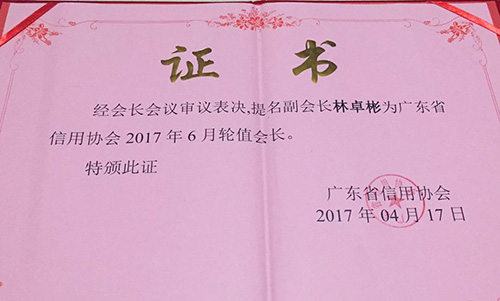 证书
经会长会议审议表决,提名副会长林卓彬为广东省
信用协会2017年6月轮值会长。
特颁此证
广东省信用协会
2017年04月17日